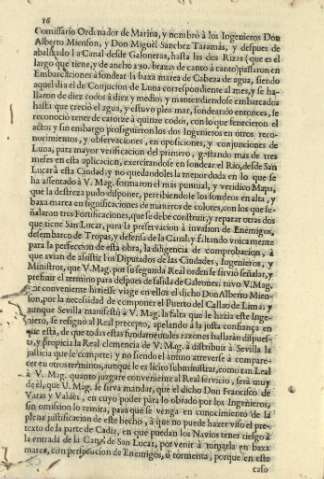 16
Comissario Ordenador de Marina, y nombró à los Ingenieros Don
Alberto Mienson, y Don Miguel Sanchez Taramàs, y despues de
abalisado la Canal desde Galoneras, hasta los dos Rizas (que es el
largo que tiene, y de ancho 250. brazas de canto à canto) passaron en
Embarcaciones à sondear la baxa marea de Cabeza de agua, siendo
aquel dia el de Conjuncion de Luna correspondiente al mes, y se ha-
llaron de diez codos à diez y medio; y manteniendose embarcados
hasta que creciò el agua, y estuvo plea mar, sondeando entonces, se
reconociò tener de catorze à quinze codos, con lo que fenecieron el
acto; y sin embargo prosiguieron los dos Ingenieros en otros reco-
nocimientos, y observaciones, en oposiciones, y conjunciones de
Luna, para mayor verificacion del primero, gastando mas de tres
meses en esta aplicacion, exercitandose en sondear el Rio, desde San
Lucar à esta Ciudad; y no quedandoles la menor duda en lo que se
ha assentado à V. Mag. formaron el mas puntual, y veridico Mapa,
que la destreza pudo disponer, percibiendose los sondeos en alta, y
baxa marea en significaciones de numeros de colores, con los que se-
ñalaron tres Fortificaciones, que se debe construir, y reparar otras dos
que tiene San Lucar, para la preservacion à invasion de Enemigos,
desembarco de Tropas, y defensa de la Canal; y faltando unicamente
para la perfeccion de esta obra, la diligencia de comprobacion, à
que avian de assistir los Diputados de las Ciudades, Ingenieros, y
Ministros, que V. Mag. por su segunda Real orden se sirviò señalar, y
prefinir el termino para despues de salida de Galeones; tuvo V. Mag.
por conveniente hiziesse viage en ellos el dicho Don Alberto Mien-
son, por la necessidad de componer el Puerto del Callao de Lima; y
aunque Sevilla manifestò à V. Mag. la falta que le hazia este Inge-
niero, se resignò al Real precepto, apelando à la justa confianza en
que està, de que todas estas fundamentales razones hallaràn dispues-
to, y propicia la Real clemencia de V. Mag. à distribuir à Sevilla la
justicia que le compete; y no siendo el animo atreverse à compare-
cer en otros terminos, aunque le es licito subministrar, como tan Leal
à V. Mag. quanto juzgare conveniente al Real servicio, serà muy
de èl, que V. Mag. se sirva mandar, que el dicho Don Francisco de
Varas y Valdès, en cuyo poder para lo obrado por los Ingenieros,
sin omission lo remita, para que se venga en conocimiento de la
plena justificacion de este hecho, à que no puede hazer viso el pre-
texto de la parte de Cadiz, en que puedan los Navios tener riesgo à
la entrada de la Canal de San Lucar, por venir à tomarla en baxa
marea, con persecucion de Enemigos, ò tormenta, porque en este
caso